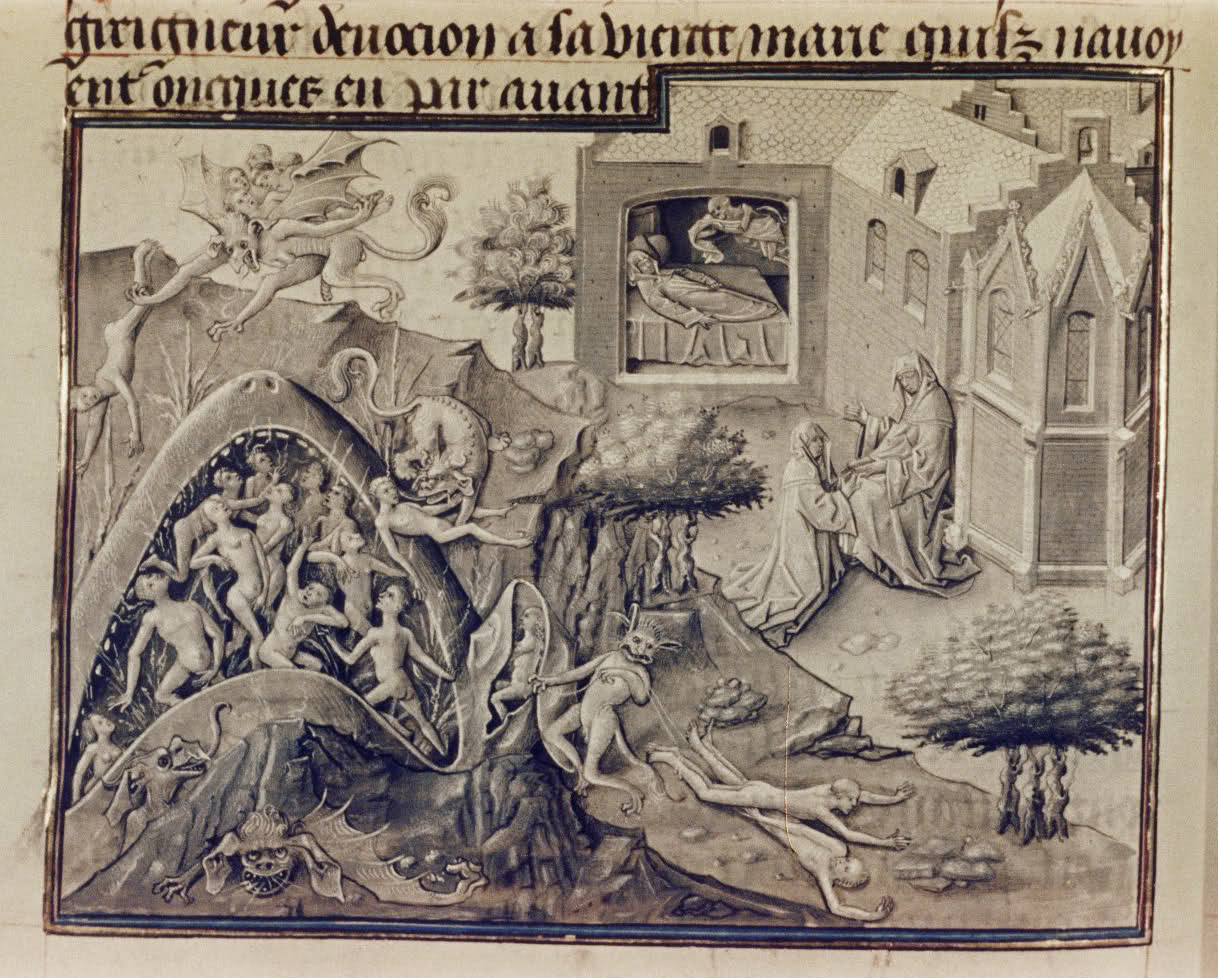 deuocion a la vierge marie quilz nauoy
ent oncques eu par auant